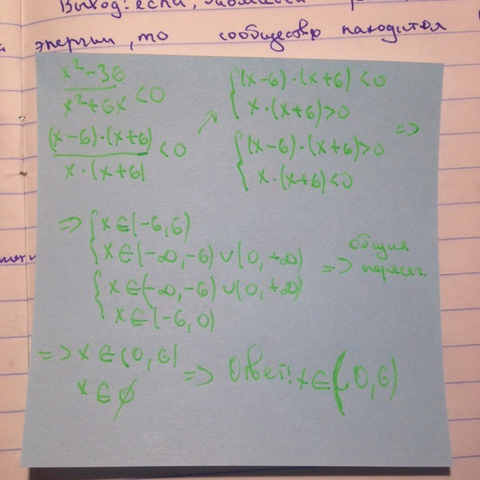 Выход: если,
энергии, то сообщество находится
x² - 36
/ x² + 6x < 0
(x-6)·(x+6)
/ x·(x+6) < 0
{ (x-6)·(x+6) < 0
x·(x+6) > 0
{ (x-6)·(x+6) > 0
x·(x+6) < 0
=>
=> { x∈(-6,6)
x∈(-∞,-6)∪(0,+∞)
{ x∈(-∞,-6)∪(0,+∞)
x∈(-6,0)
=> общая
перес.
=> x∈(0,6)
x∈∅
=> Ответ: x∈(0,6)